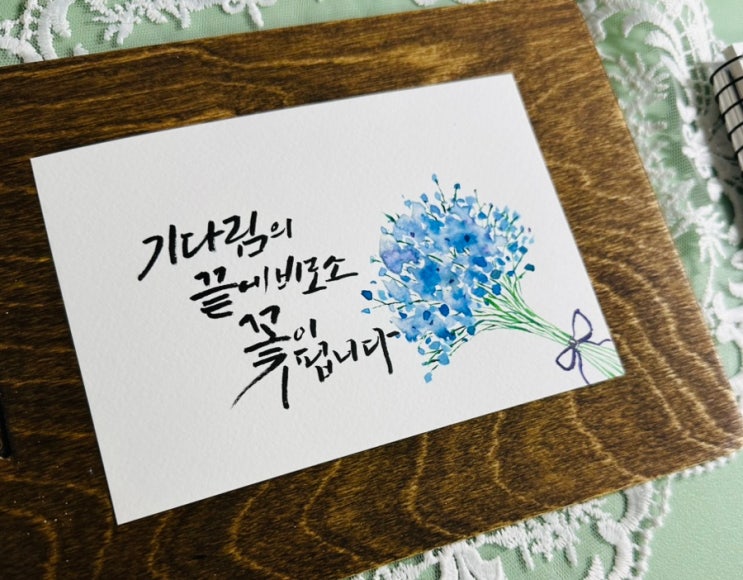 기다림의
끝에 비로소
꽃이
핍니다